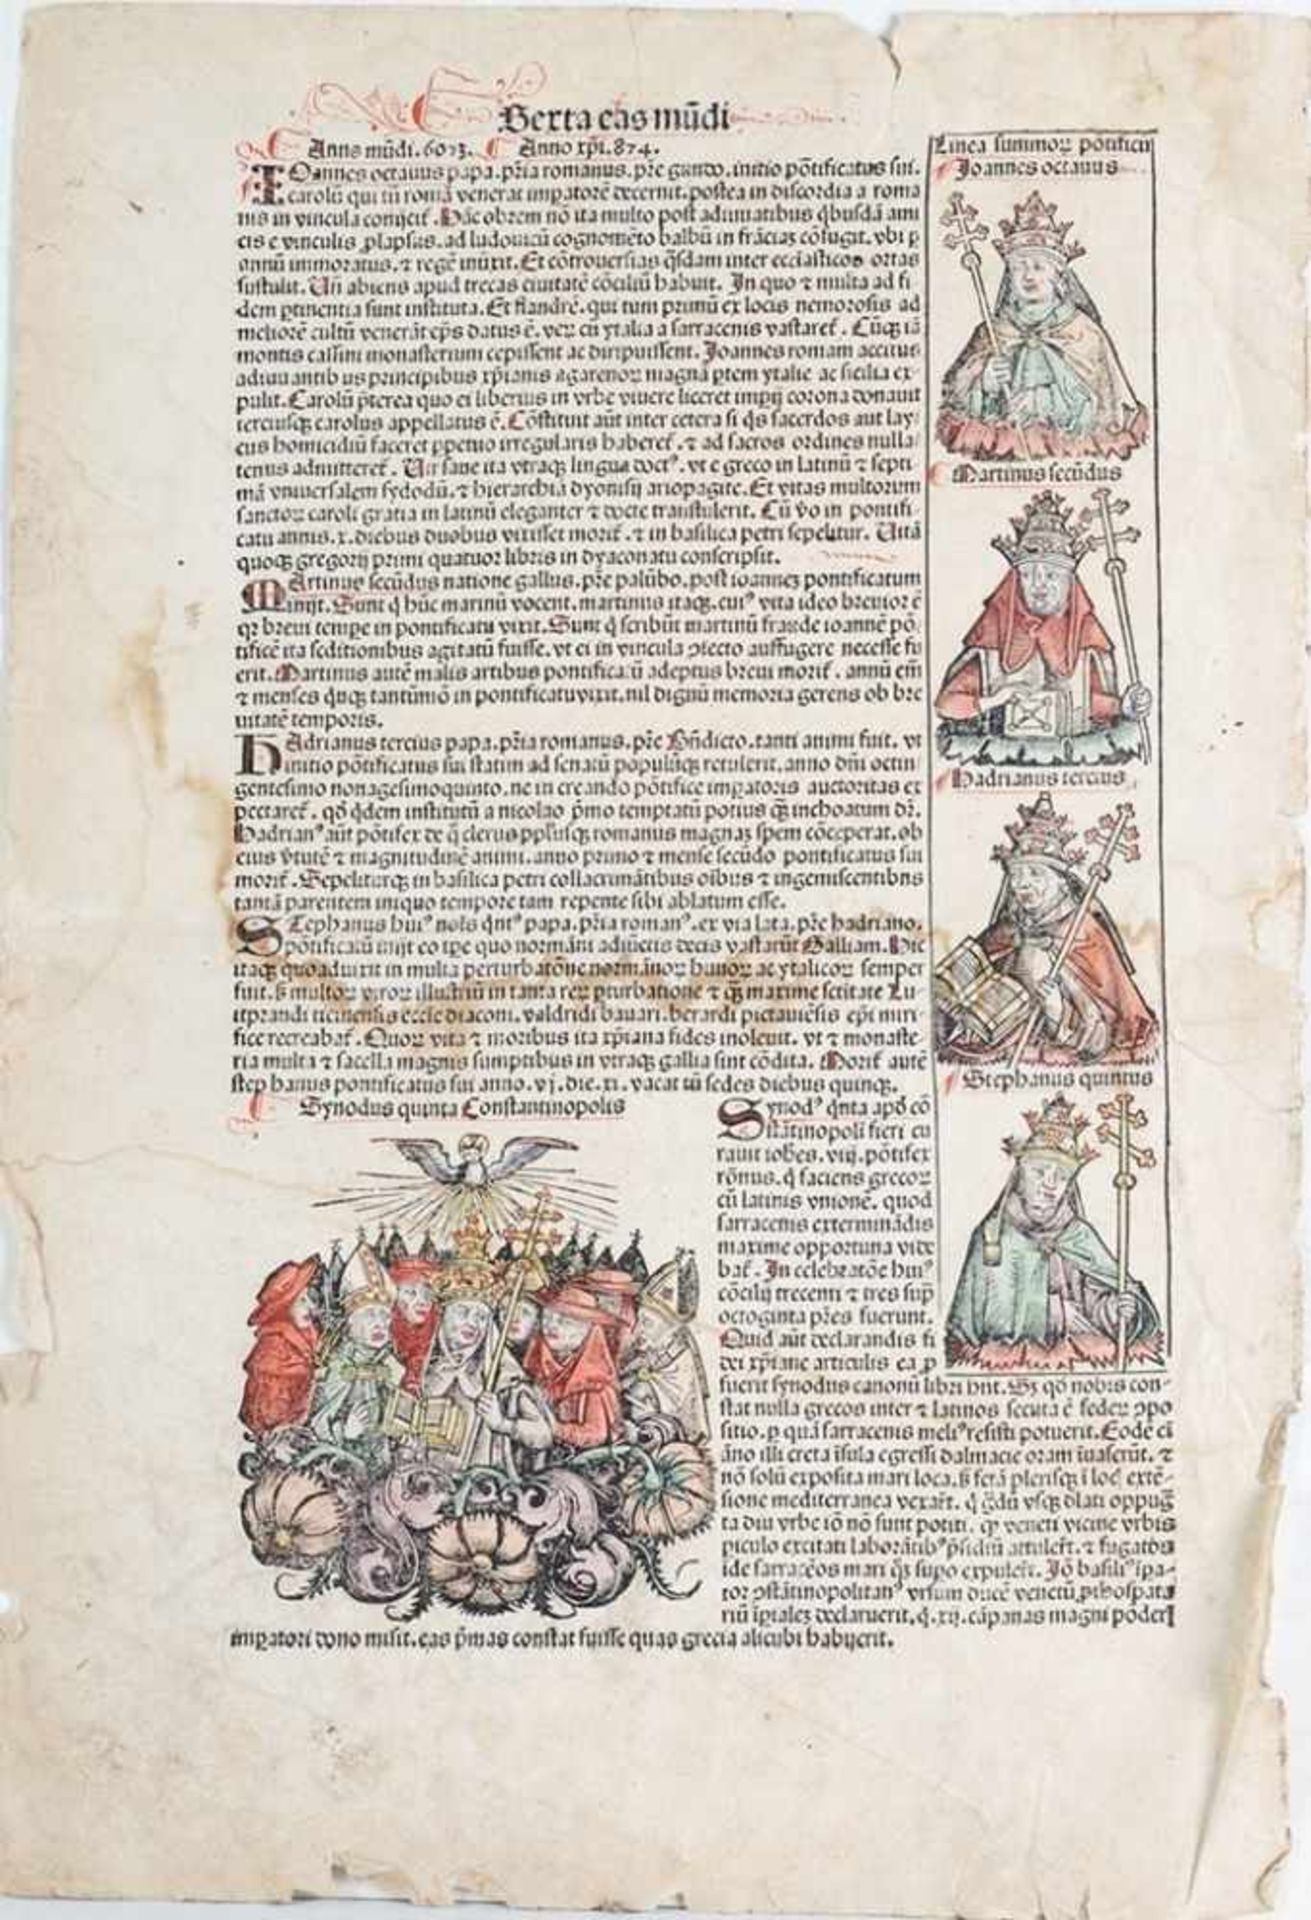 Sexta etas mūdi
Anno mūdi.6073. Anno xp̄i.874.
IOannes octauus papa.pr̄ia romanus.pr̄e gundo.initio pōtificatus sui.
carolū qui tū romā venerat imꝑatorē decernit.postea in discordia a roma
nis in vincula conijcit̄.Hāc obrem nō ita multo post adiuuātibus q̇busdā ami
cis e vinculis ꝓlapsus.ad ludouicū cognomēto balbū in frāciaꝫ cōfugit.vbi ꝑ
annū immoratus.⁊ regē inūxit.Et cōtrouersias q̄sdam inter ecclāsticos ortas
sustulit.Uñ abiens apud trecas ciuitatē cōciliū habuit.In quo ⁊ multa ad fi
dem ꝑtinentia sunt instituta.Et flandrē.qui tum primū ex locis nemorosis ad
meliorē cultū venerāt ep̄s datus ē.veꝝ cū ytalia a sarracenis vastaret̄.Cūqꝫ iā
montis cassini monasterium cepissent ac diripuissent.Joannes romam accitus
adiuuantib us principibus xp̄ianis agarenoꝝ magnā ꝑtem ytalie ac sicilia ex
pulit.Carolū p̄terea quo ei liberius in vrbe viuere liceret impij corona donauit
terciusqꝫ carolus appellatus ē.Cōstituit aūt inter cetera si q̇s sacerdos aut lay
cus homicidiū faceret ꝑpetuo irregularis haberet̄.⁊ ad sacros ordines nulla
tenus admitteret̄.Uir sane ita vtraqꝫ lingua doctꝰ.vt e greco in latinū ⁊ septi
mā vniuersalem sydodū.⁊ hierarchiā dyonisij ariopagite.Et vitas multorum
sanctoꝝ caroli gratia in latinū eleganter ⁊ docte transtulerit.Cū v̄o in pontifi
catu annis.x.diebus duobus vixisset morit̄.⁊ in basilica petri sepelitur.Uitā
quoqꝫ gregorij primi quatuor libris in dyaconatu conscripsit.
MArtinus secūdus natione gallus.pr̄e palūbo.post ioanneꝫ pontificatum
inijt.Sunt q̇ hūc marinū vocent.martinus itaqꝫ.cuiꝰ vita ideo breuior ē
qꝛ breui tempe in pontificatu vixit.Sunt q̇ scribūt martinū fraude ioannē pō
tificē ita seditionibus agitatū fuisse.vt ei in vincula ↄiecto auffugere necesse fu
erit.Martinus autē malis artibus pontificatū adeptus breui morit̄.annū em̄
⁊ menses q̇nqꝫ tantūmō in pontificatu vixit.nil dignū memoria gerens ob bre
uitatē temporis.
HAdrianus tercius papa.pr̄ia romanus.pr̄e Bn̄dicto.tanti animi fuit.vt
initio pōtificatus sui statim ad senatū populūqꝫ retulerit.anno dn̄i octin
gentesimo nonagesimoquinto.ne in creando pōtifice imꝑatoris auctoritas ex
pectaret̄.qd̄ q̇dem institutū a nicolao p̄mo temptatū potius q̄ꝫ inchoatum dr̄.
Hadrianꝰ aūt pōtifex de q̄ clerus pplūsqꝫ romanus magnaꝫ spem cōceperat.ob
eius v̄tutē ⁊ magnitudinē animi.anno primo ⁊ mense secūdo pontificatus sui
morit̄.Sepeliturqꝫ in basilica petri collacrimātibus oībus ⁊ ingemiscentibus
tantā parentem iniquo tempore tam repente sibi ablatum esse.
STephanus huiꝰ noīs q̇ntꝰ papa.pr̄ia romanꝰ.ex via lata.pr̄e hadriano.
pōtificatū inijt eo tp̄e quo normāni adiūctis decis vastarūt Galliam.Hic
itaqꝫ quoad vixit in multa perturbatōne normānoꝝ hunoꝝ ac ytalicoꝝ semper
fuit.ß multoꝝ viroꝝ illustriū in tanta reꝝ ꝑturbatione ⁊ q̄ꝫ maxime scītate Lu
itprandi ticinensis eccle diaconi.valdridi bauari.berardi pictauiēsis ep̄i miri
fice recreabat̄.Quoꝝ vita ⁊ moribus ita xp̄iana fides inoleuit.vt ⁊ monaste
ria multa ⁊ sacella magnis sumptibus in vtraqꝫ gallia sint cōdita.Morit̄ autē
step hanus pontificatus sui anno.vj.die.xi.vacat tū sedes diebus quinqꝫ.
Linea summoꝝ pōtificū
Joannes octauus
Martinus secūdus
Hadrianus tercius
Stephanus quintus
Synodus quinta Constantinopolis
SYnodꝰ q̇nta apd̄ cō
stātinopoli fieri cu
rauit iohēs.viij.pōtifex
rōmus.q̇ faciens grecoꝝ
cū latinis vnionē.quod
sarracenis exterminādis
maxime opportuna vide
bat̄.In celebratōe huiꝰ
cōcilij trecenti ⁊ tres sup̄
octoginta pr̄es fuerunt.
Quid aūt declarandis fi
dei xp̄iane articulis ea ꝑ
fuerit synodus canonū libri hn̄t.Sꝫ qd̄ nobis con
stat nulla grecos inter ⁊ latinos secuta ē federꝫ ↄpo
sitio.ꝑ quā sarracenis meliꝰ resisti potuerit.Eodē em̄
āno illi creta īsula egressi dalmacie oram īuaserūt.⁊
nō solū exposita mari loca.ß ferā plerisqꝫ ī loc̄ extē
sione mediterranea vexar̄t.q̇ grādū vsqꝫ dlati oppug̃
ta diu vrbe iō nō sunt potiti.qꝫ veneti vicine vrbis
ꝑiculo excitati laborātibꝰ p̄sidiū attuler̄t.⁊ fugatos
ide sarracēos mari q̄ꝫ supo expuler̄t.Jō basiliꝰ īpa
tor ↄstātinopolitanꝰ vrsum ducē venetū ꝓthospata
riū īpiales declaruerit.q̇.xij.cāpanas magni pōderꝭ
imꝑatori dono misit.eas p̄mas constat fuisse quas grecia alicubi habuerit.